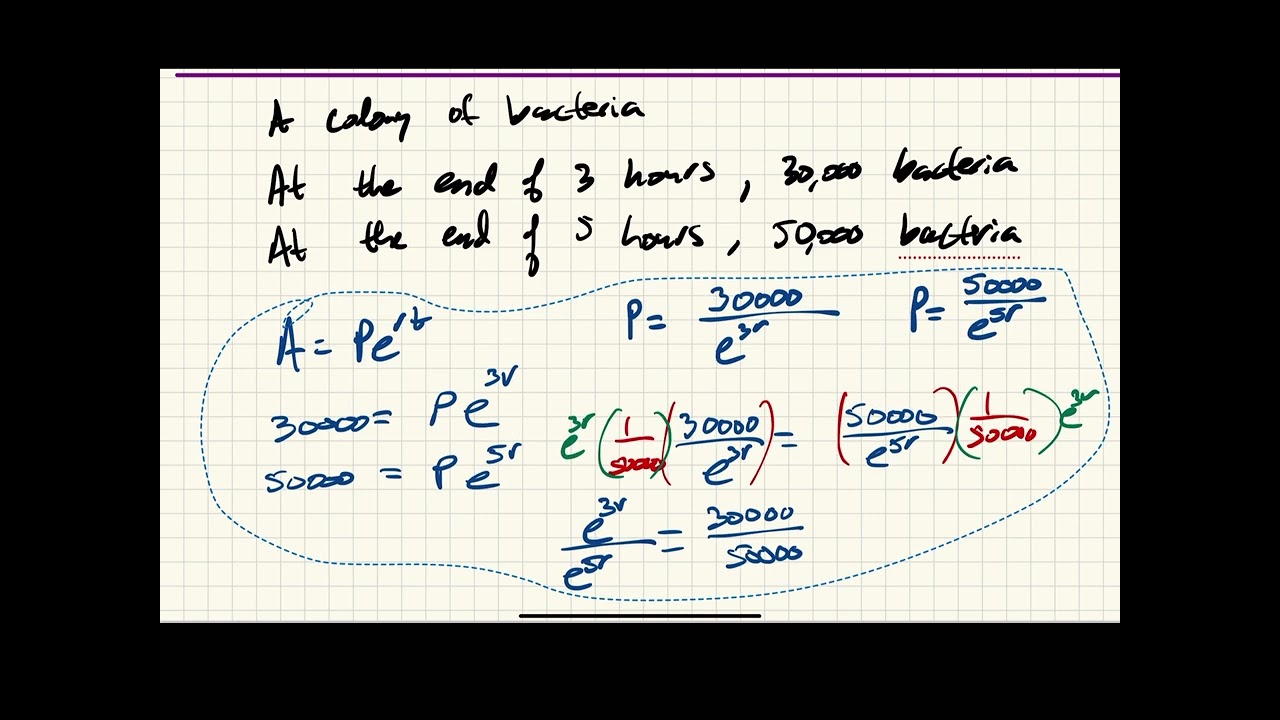 A colony of bacteria
At the end of 3 hours, 30,000 bacteria
At the end of 5 hours, 50,000 bactria
A = Pe^{rt}
P = 30000/e^{3r}
P = 50000/e^{5r}
30000 = Pe^{3r}
50000 = Pe^{5r}
e^{3r}(1/50000)(30000/e^{3r}) = (50000/e^{5r})(1/50000)e^{3r}
e^{3r}/e^{5r} = 30000/50000